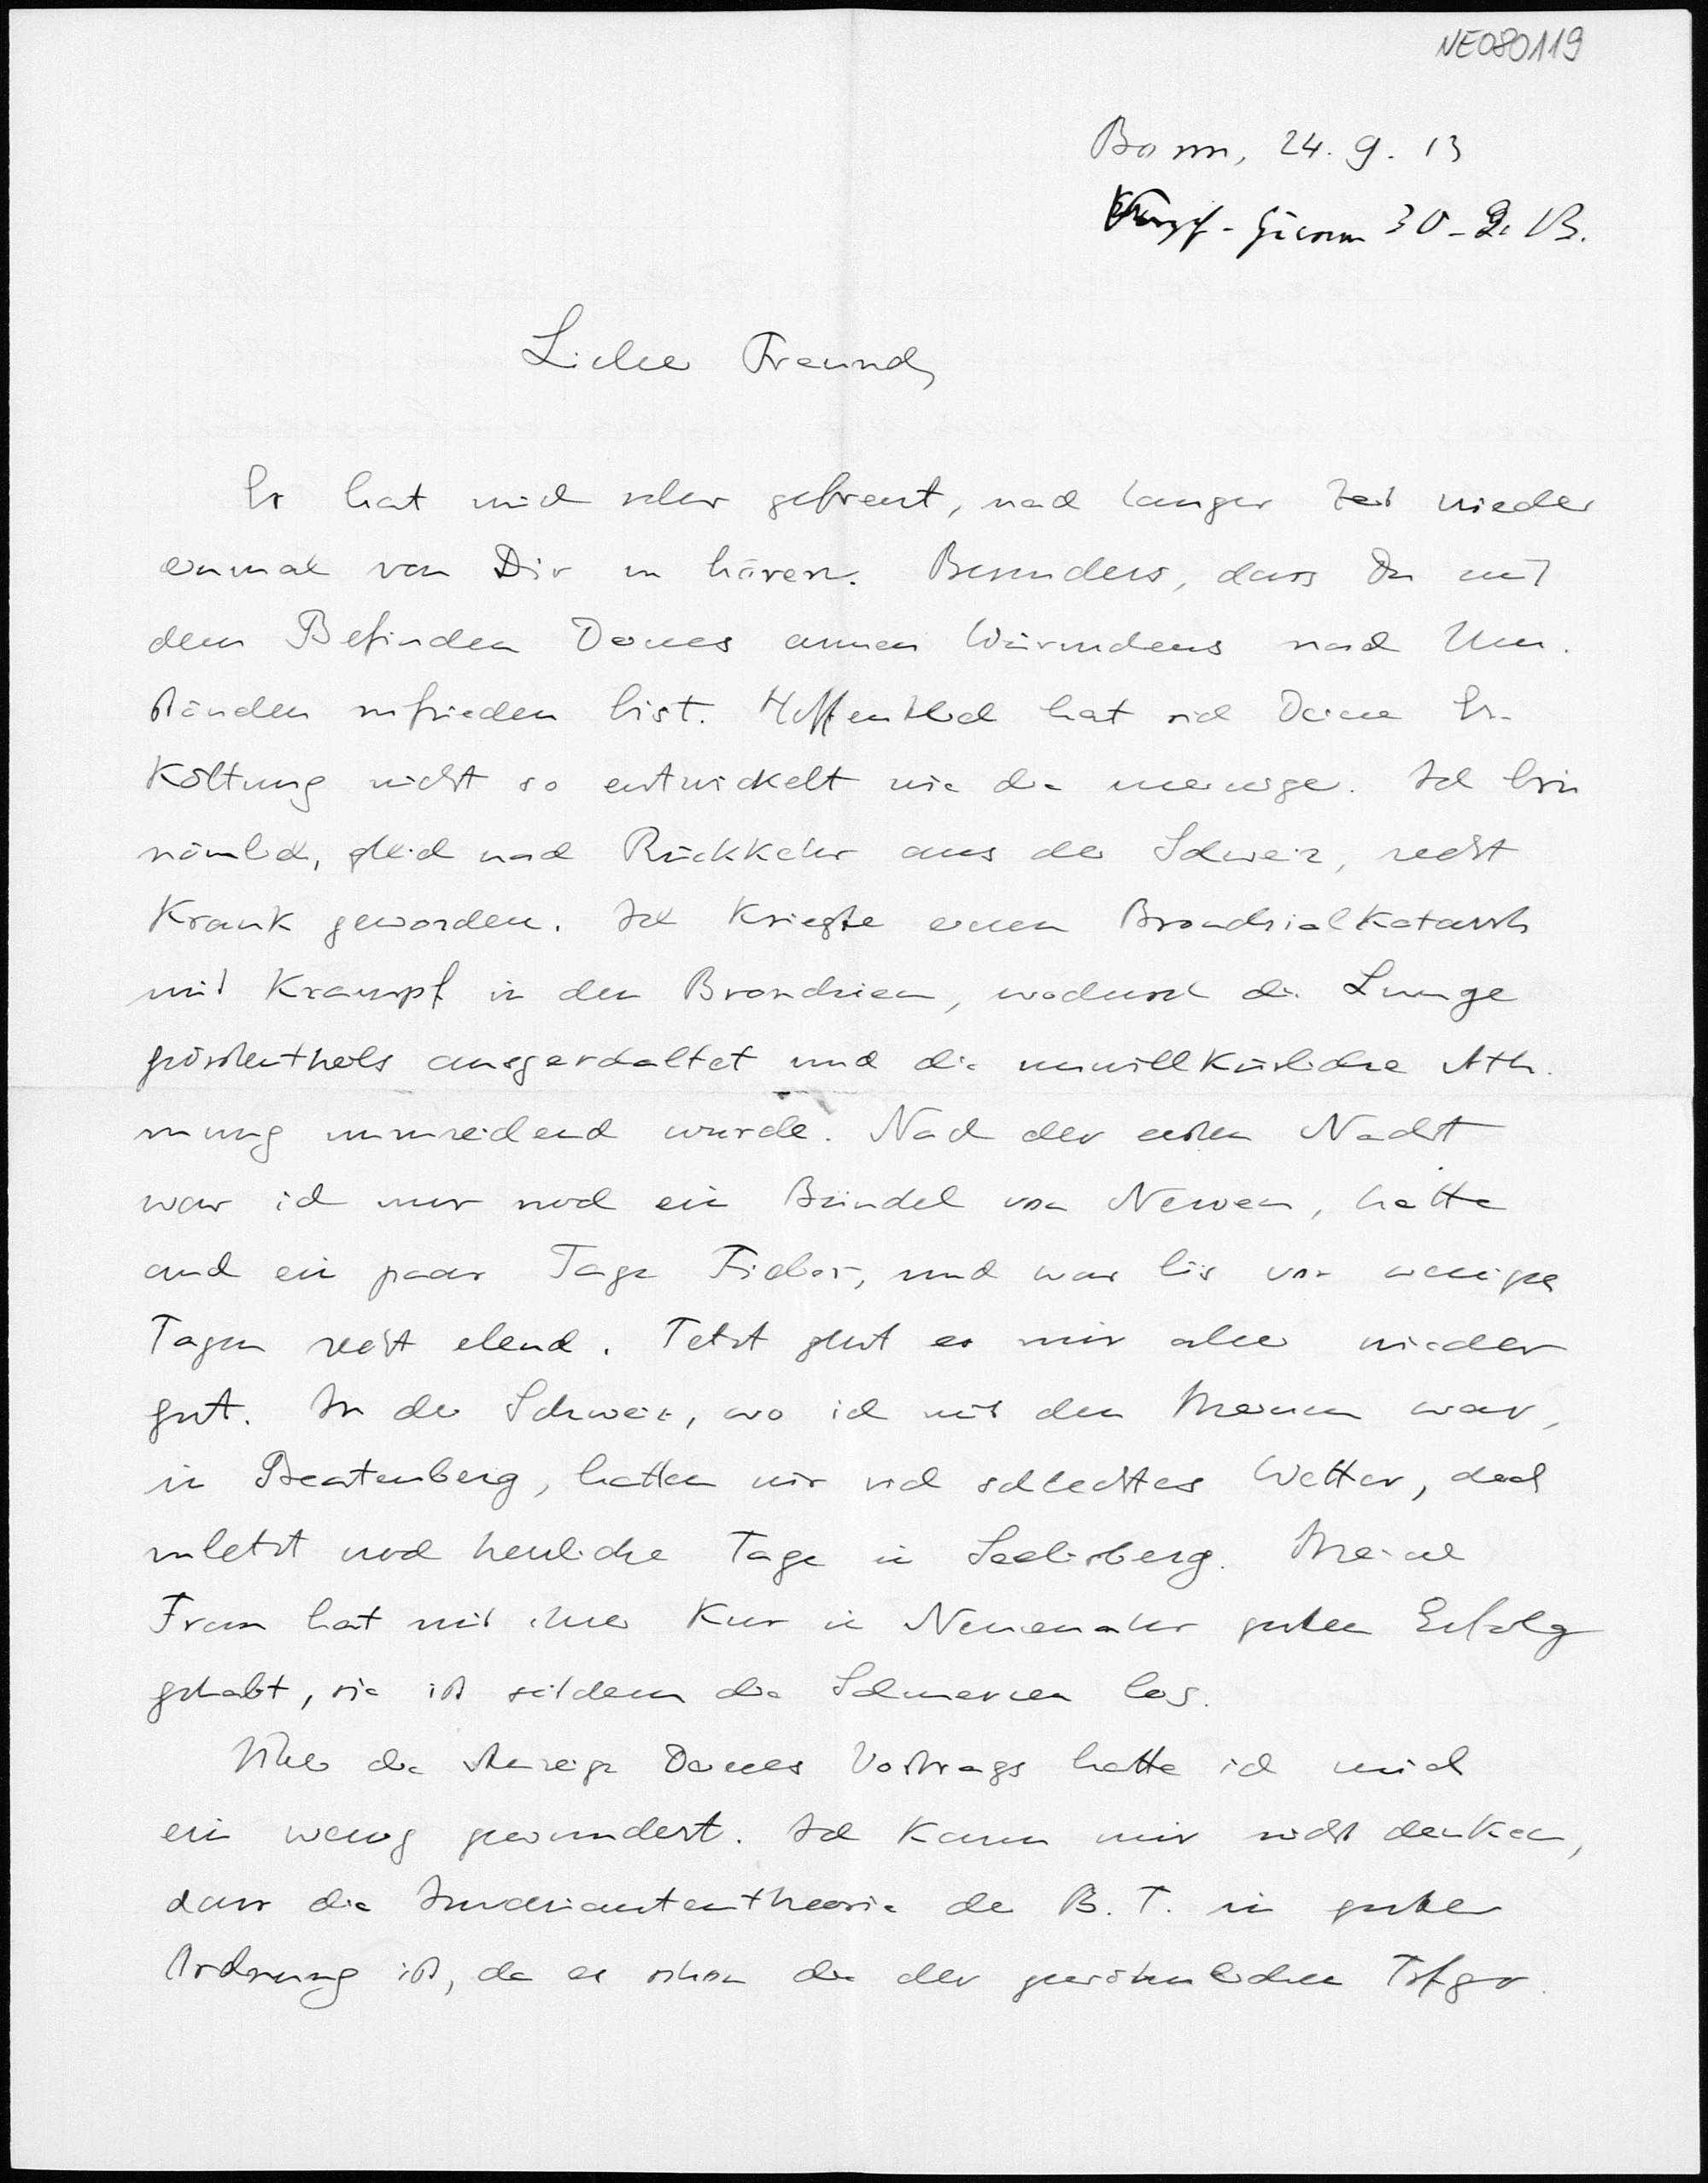 NE080119
Bonn, 24. 9. 13
30. 9. 13.
Lieber Freund,
Es hat mich sehr gefreut, nach langer Zeit wieder
einmal von Dir zu hören. Besonders, dass Du mit
dem Befinden Deines armen Würmchens nach Um-
ständen zufrieden bist. Hoffentlich hat sich Deine Er-
kältung nicht so entwickelt wie die meinige. Ich bin
nämlich, gleich nach Rückkehr aus der Schweiz, recht
krank geworden. Ich kriegte einen Bronchialkatarrh
mit Krampf in den Bronchien, wodurch die Lunge
grösstentheils ausgeschaltet und die unwillkürliche Ath-
mung unzureichend wurde. Nach der ersten Nacht
war ich nur noch ein Bündel von Nerven, hatte
auch ein paar Tage Fieber, und war bis vor wenigen
Tagen recht elend. Jetzt geht es mir aber wieder
gut. In der Schweiz, wo ich mit den Meinen war,
in Beatenberg, hatten wir viel schlechtes Wetter, doch
zuletzt noch herrliche Tage in Seelisberg. Meine
Frau hat mit ihrer Kur in Neuenahr guten Erfolg
gehabt, sie ist seitdem die Schmerzen los.
Über die Anzeige Deines Vortrags hatte ich mich
ein wenig gewundert. Ich kann mir nicht denken,
dass die Invariantentheorie der B. T. in guter
Ordnung ist, da es schon die der gewöhnlichen Trfgr.